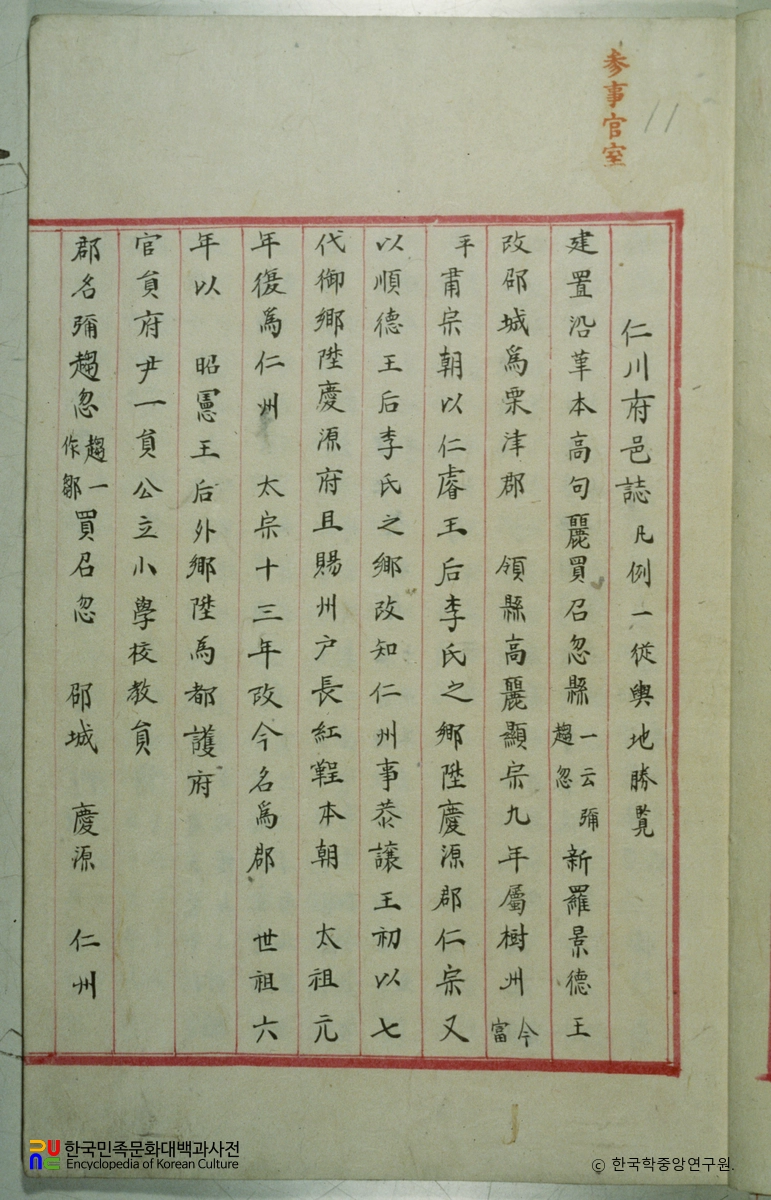 参事官室
11
仁川府邑誌 凡例一從輿地勝覽
建置沿革本高句麗買召忽縣一云彌趨忽新羅景德王
改邵城爲栗津郡 領縣高麗顯宗九年屬樹州今富
平肅宗朝以仁睿王后李氏之鄉陞慶源郡仁宗又
以順德王后李氏之鄉改知仁州事恭讓王初以七
代御鄉陞慶源府且賜州户長紅鞓本朝 太祖元
年復爲仁州 太宗十三年改今名爲郡 世祖六
年以 昭憲王后外鄉陞爲都護府
官員府尹一員公立小學校教員
郡名彌趨忽趨一作鄒買召忽 邵城 慶源 仁州
한국민족문화대백과사전
Encyclopedia of Korean Culture
© 한국학중앙연구원.